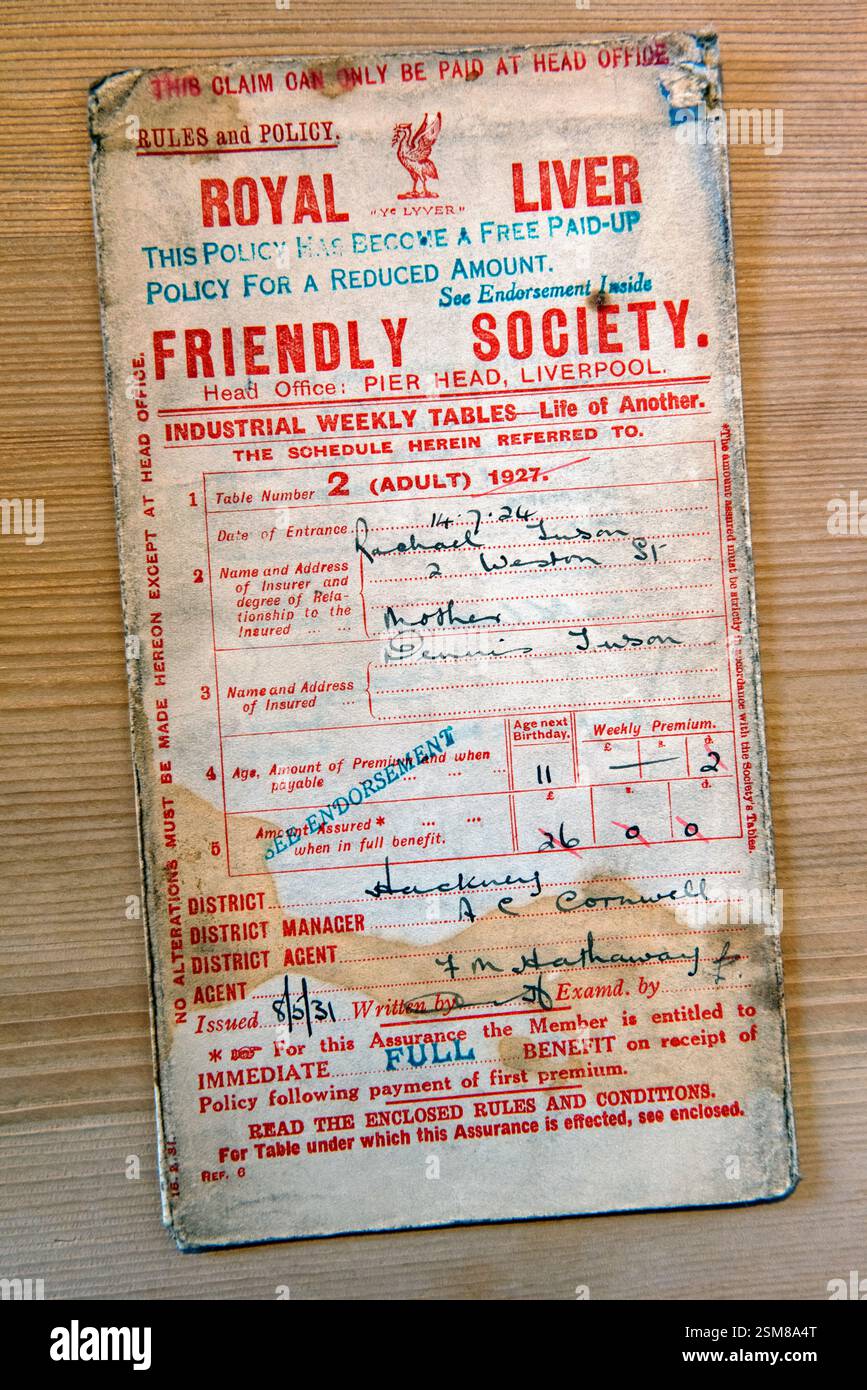 THIS CLAIM CAN ONLY BE PAID AT HEAD OFFICE
RULES and POLICY.
ROYAL LIVER
"Yᵉ LYVER"
THIS POLICY HAS BECOME A FREE PAID-UP
POLICY FOR A REDUCED AMOUNT.
See Endorsement Inside
FRIENDLY SOCIETY.
Head Office: PIER HEAD, LIVERPOOL.
INDUSTRIAL WEEKLY TABLES—Life of Another.
THE SCHEDULE HEREIN REFERRED TO.
1 Table Number 2 (ADULT) 1927.
Date of Entrance 14.7.24
2 Name and Address of Insurer and degree of Relationship to the Insured
Rachael Tuson
2 Weston St
Mother
3 Name and Address of Insured
Dennis Tuson
4 Age, Amount of Premium and when payable
Age next Birthday. Weekly Premium.
£ s. d.
11 — 2
SEE ENDORSEMENT
5 Amount Assured * when in full benefit.
£ s. d.
26 0 0
DISTRICT Hackney
DISTRICT MANAGER A C Cornwell
DISTRICT AGENT
AGENT F M Hathaway
Issued 8/5/31 Written by Examd. by
* ☞ For this Assurance the Member is entitled to
IMMEDIATE FULL BENEFIT on receipt of
Policy following payment of first premium.
READ THE ENCLOSED RULES AND CONDITIONS.
For Table under which this Assurance is effected, see enclosed.
REF. 6
NO ALTERATIONS MUST BE MADE HEREON EXCEPT AT HEAD OFFICE.
*The amount assured must be strictly in accordance with the Society's Tables.
alamy
Image ID: 2SM8A4T
www.alamy.com